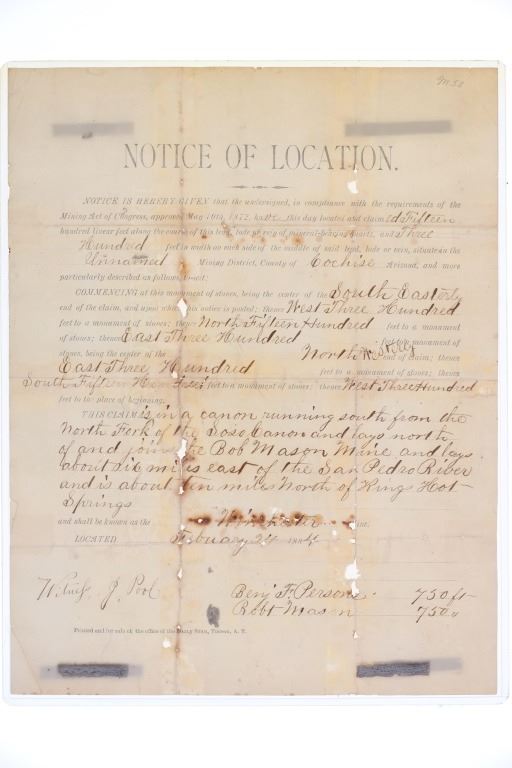 NOTICE OF LOCATION.
NOTICE IS HEREBY GIVEN that the undersigned, in compliance with the requirements of the
Mining Act of Congress, approved May 10th, 1872, have this day located and claimed Fifteen
hundred linear feet along the course of this lead, lode or vein of mineral-bearing quartz, and Three
Hundred feet in width on each side of the middle of said lead, lode or vein, situate in the
Unnamed Mining District, County of Cochise Arizona, and more
particularly described as follows, to-wit:
COMMENCING at this monument of stones, being the center of the South Easterly
end of the claim, and upon which this notice is posted; thence West Three Hundred
feet to a monument of stones; thence North Fifteen Hundred feet to a monument
of stones; thence East Three Hundred feet to a monument of
stones, being the center of the North Westerly end of claim; thence
East Three Hundred feet to a monument of stones; thence
South Fifteen Hundred feet to a monument of stones; thence West Three Hundred
feet to place of beginning.
THIS CLAIM is in a canon running south from the
North Fork of the Soso Canon and lays north
of and joins the Bob Mason Mine and lays
about six miles east of the San Pedro River
and is about ten miles North of Kings Hot
Springs
and shall be known as the Winchester
LOCATED February 24 188
Witness, J. Pool
Benj. F. Persons 750 ft
Robt Mason 750 "
Printed and for sale at the office of the Daily Star, Tucson, A. T.